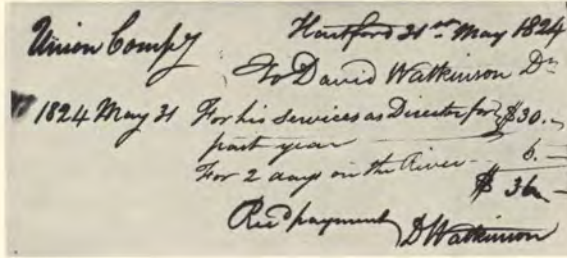 Hartford 31st May 1824
Union Compy
To David Watkinson Dr
1824 May 31 For his services as Director for $30.-
past year
For 2 days on the River -- 6.-
$36-
Recd payment
D Watkinson